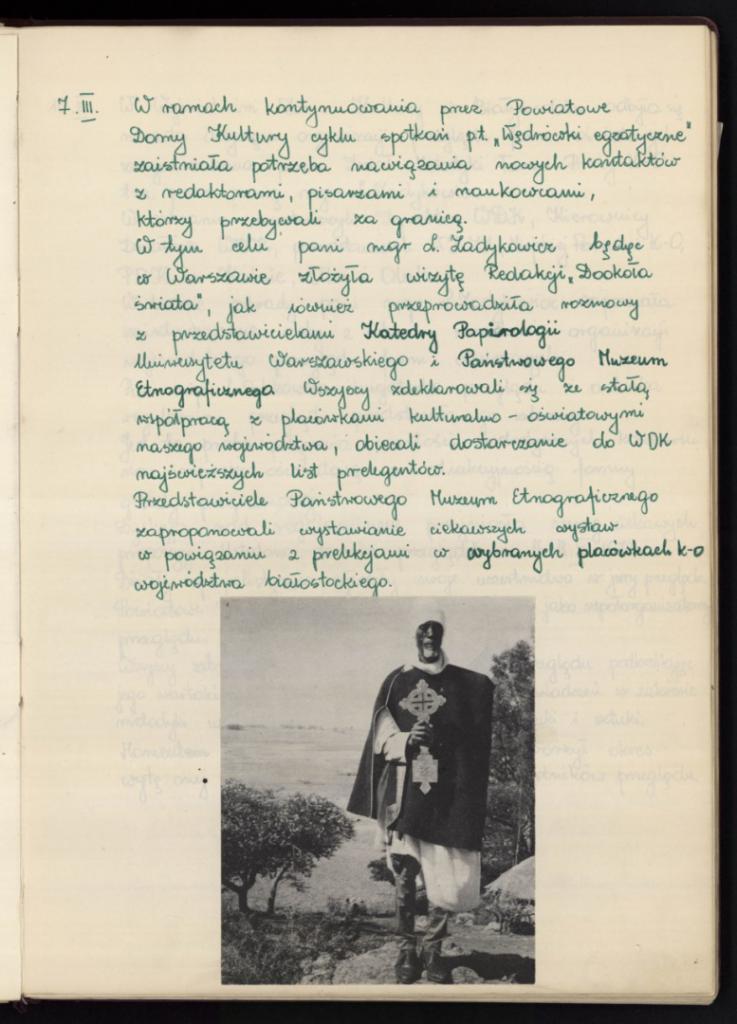 7.III. W ramach kontynuowania prez Powiatowe
Domy Kultury cyklu spotkań pt. „Wędrówki egzotyczne"
zaistniała potrzeba nawiązania nowych kontaktów
z redaktorami, pisarzami i naukowcami,
którzy przebywali za granicą.
W tym celu pani mgr d. Zadykowicz będąc
w Warszawie złożyła wizytę Redakcji „Dookoła
świata", jak również przeprowadziła rozmowy
z przedstawicielami Katedry Papirologii
Uniwersytetu Warszawskiego i Państwowego Muzeum
Etnograficznego. Wszyscy zdeklarowali się ze stałą
współpracą z placówkami kulturalno - oświatowymi
naszego województwa, obiecali dostarczanie do WDK
najświeższych list prelegentów.
Przedstawiciele Państwowego Muzeum Etnograficznego
zaproponowali wystawianie ciekawszych wystaw
w powiązaniu z prelekcjami w wybranych placówkach k-o
województwa białostockiego.